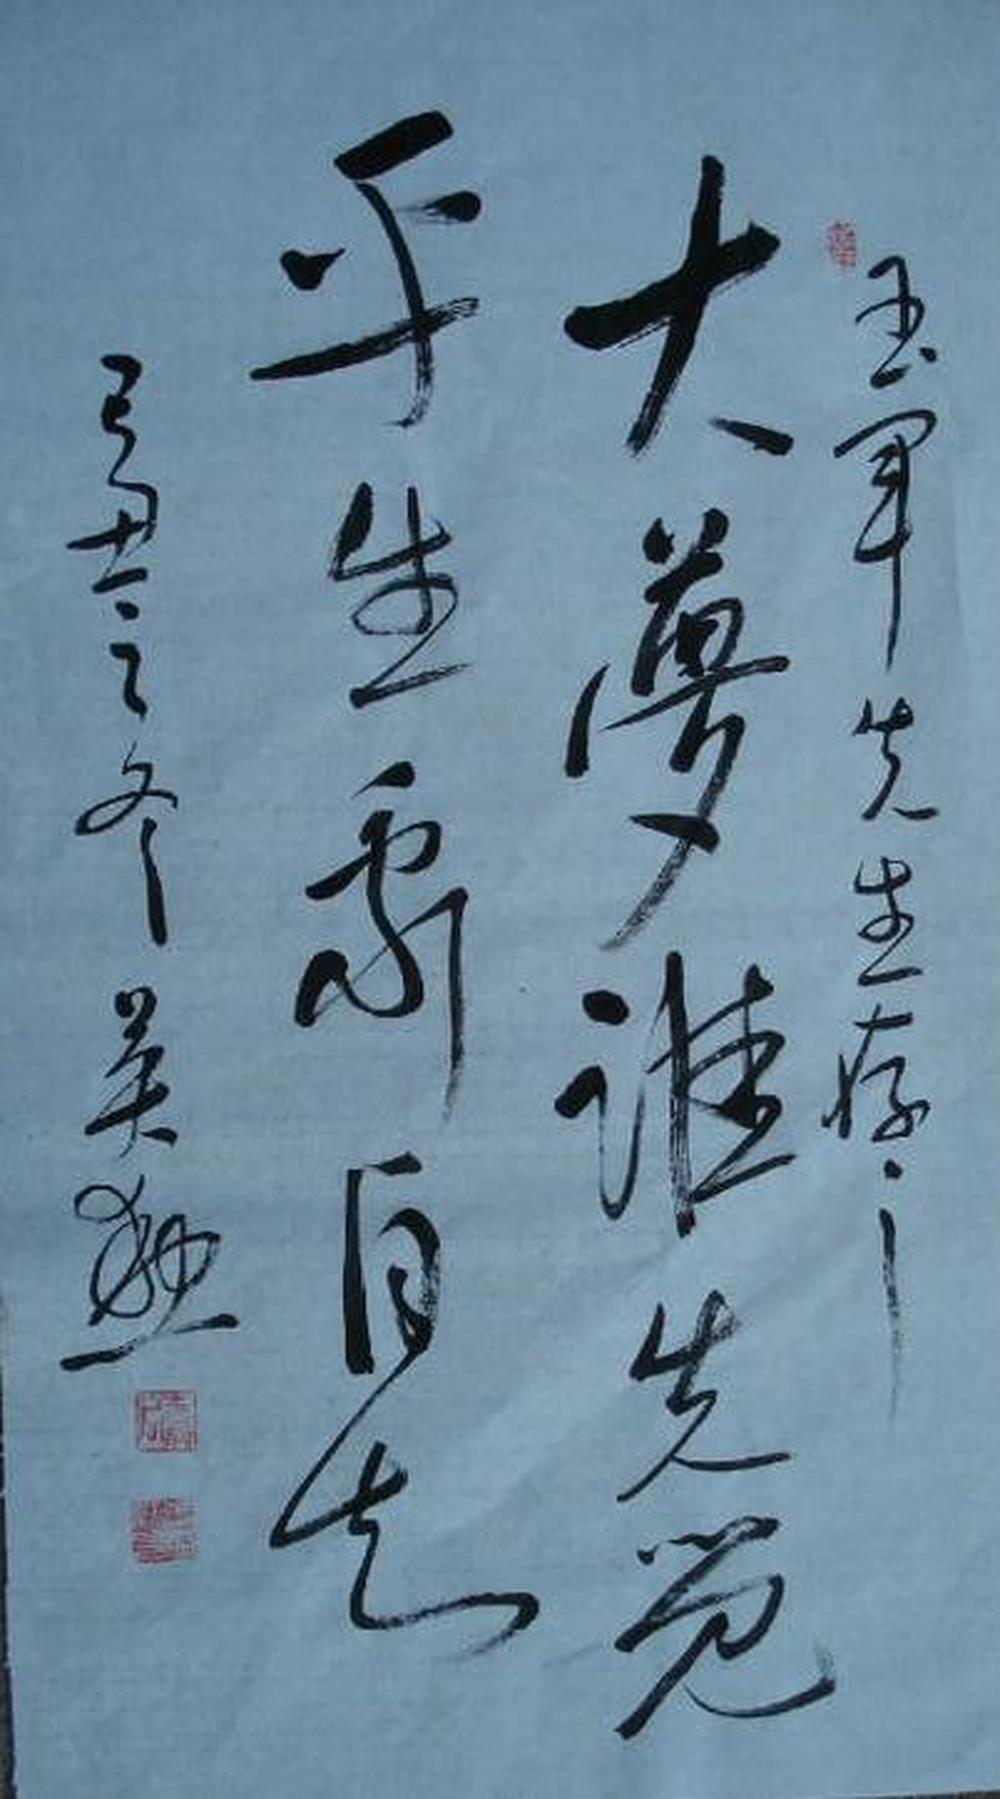 玉军先生存之
大夢谁先觉
平生我自知
己丑之冬 吴